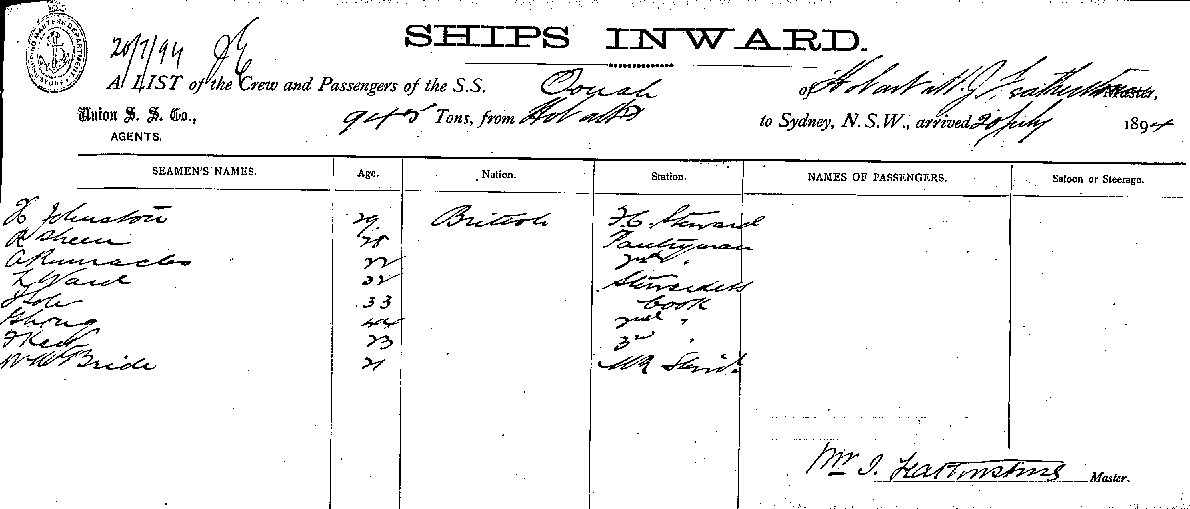 SHIPS INWARD.
20/7/94
A LIST of the Crew and Passengers of the S.S. Oonah of Hobart W. J. Featherstone Master,
Union S. S. Co., 945 Tons, from Hobart to Sydney, N.S.W., arrived 20 July 1894
AGENTS.
SEAMEN'S NAMES. Age. Nation. Station. NAMES OF PASSENGERS. Saloon or Steerage.
Johnston 29 British F.C. Steward
Sheen 28 Pantryman
A Runnacles 22 2nd "
Ward 22 Stewardess
33 Cook
44 2nd "
23 3rd "
W McBride 21
Featherstone Master.